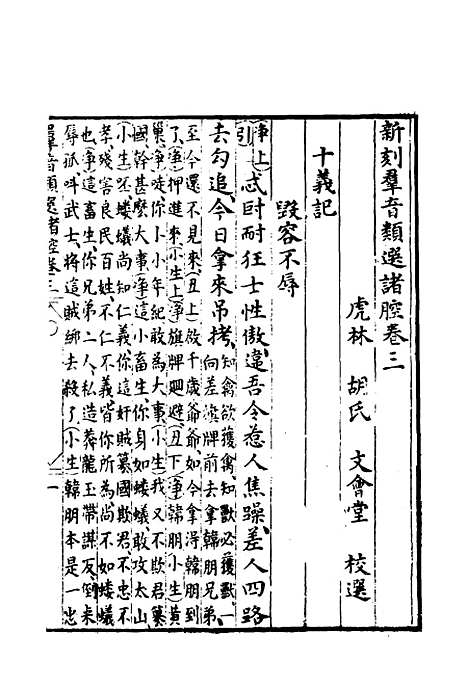 新刻羣音類選諸腔卷三
虎林　胡氏　文會堂　校選
十義記
毀容不辱
淨上
引忒耐狂士性傲違吾令惹人焦躁差人四路
去勾追今日拿來吊拷知禽欲獲禽知獸必獲獸一
向差旗牌前去拿韓朋兄弟
至今還不見來丑上啟千歲爺爺如今拿得韓朋到
了淨押進來小生上淨旗牌廻避丑下淨韓朋小生黃
巢淨唗你小小年紀敢為大事小生我又不欺君纂
國幹甚麽大事淨這小畜生你身如螻蟻敢攻太山
小生呸螻蟻尚知仁義你這奸賊纂國欺君不忠不
孝殘害良民百姓不仁不義皆你所為尚不如螻蟻
也淨這畜生你兄弟二人私造莽龍玉帶謀反倒來
辱孤叫武士將這賊綁去殺了小生韓朋本是一忠
羣音類選諸腔卷三
一